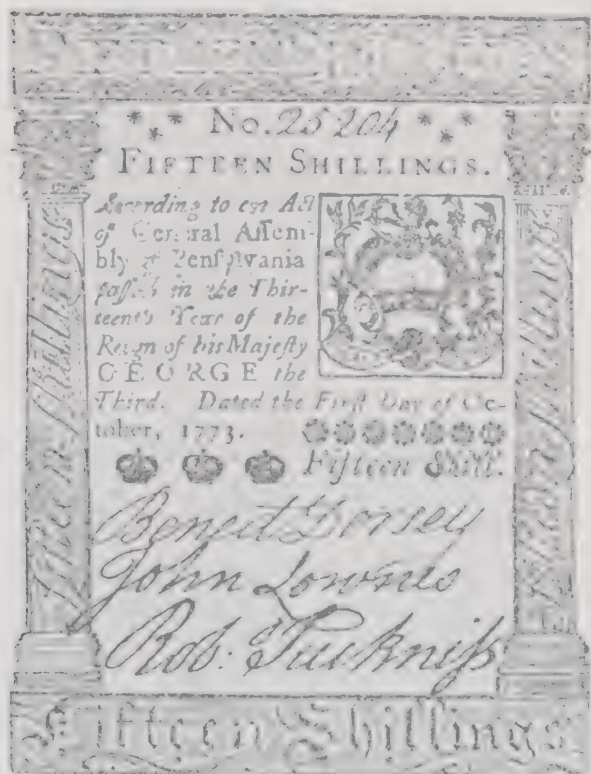 Fifteen Shillings
*⁎* No. 25204 *⁎*
FIFTEEN SHILLINGS.
According to an Act
of General Aſſem-
bly of Penſylvania
paſſed in the Thir-
teenth Year of the
Reign of his Majeſty
GEORGE the
Third. Dated the Firſt Day of Oc-
tober, 1773.
Fifteen Shill.
Benjeit Dorsey
John Lownes
Rob. Tuckniſs
Fifteen Shillings
Fifteen Shillings